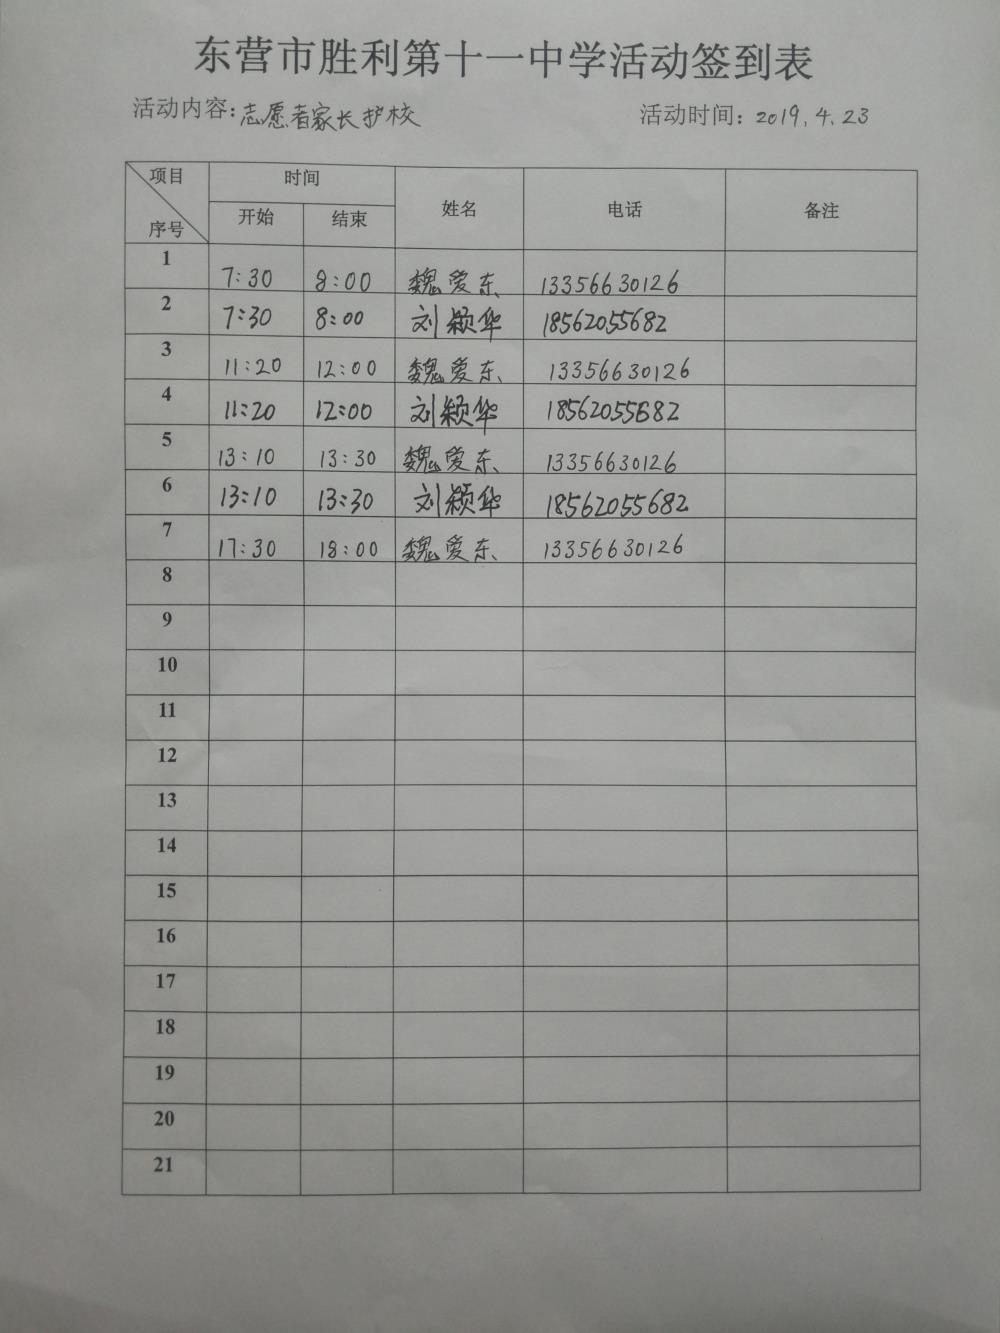 东营市胜利第十一中学活动签到表
活动内容：志愿者家长护校 活动时间：2019.4.23
项目 时间 姓名 电话 备注
序号 开始 结束
1 7:30 8:00 魏爱东 13356630126
2 7:30 8:00 刘颖华 18562055682
3 11:20 12:00 魏爱东 13356630126
4 11:20 12:00 刘颖华 18562055682
5 13:10 13:30 魏爱东 13356630126
6 13:10 13:30 刘颖华 18562055682
7 17:30 18:00 魏爱东 13356630126
8
9
10
11
12
13
14
15
16
17
18
19
20
21